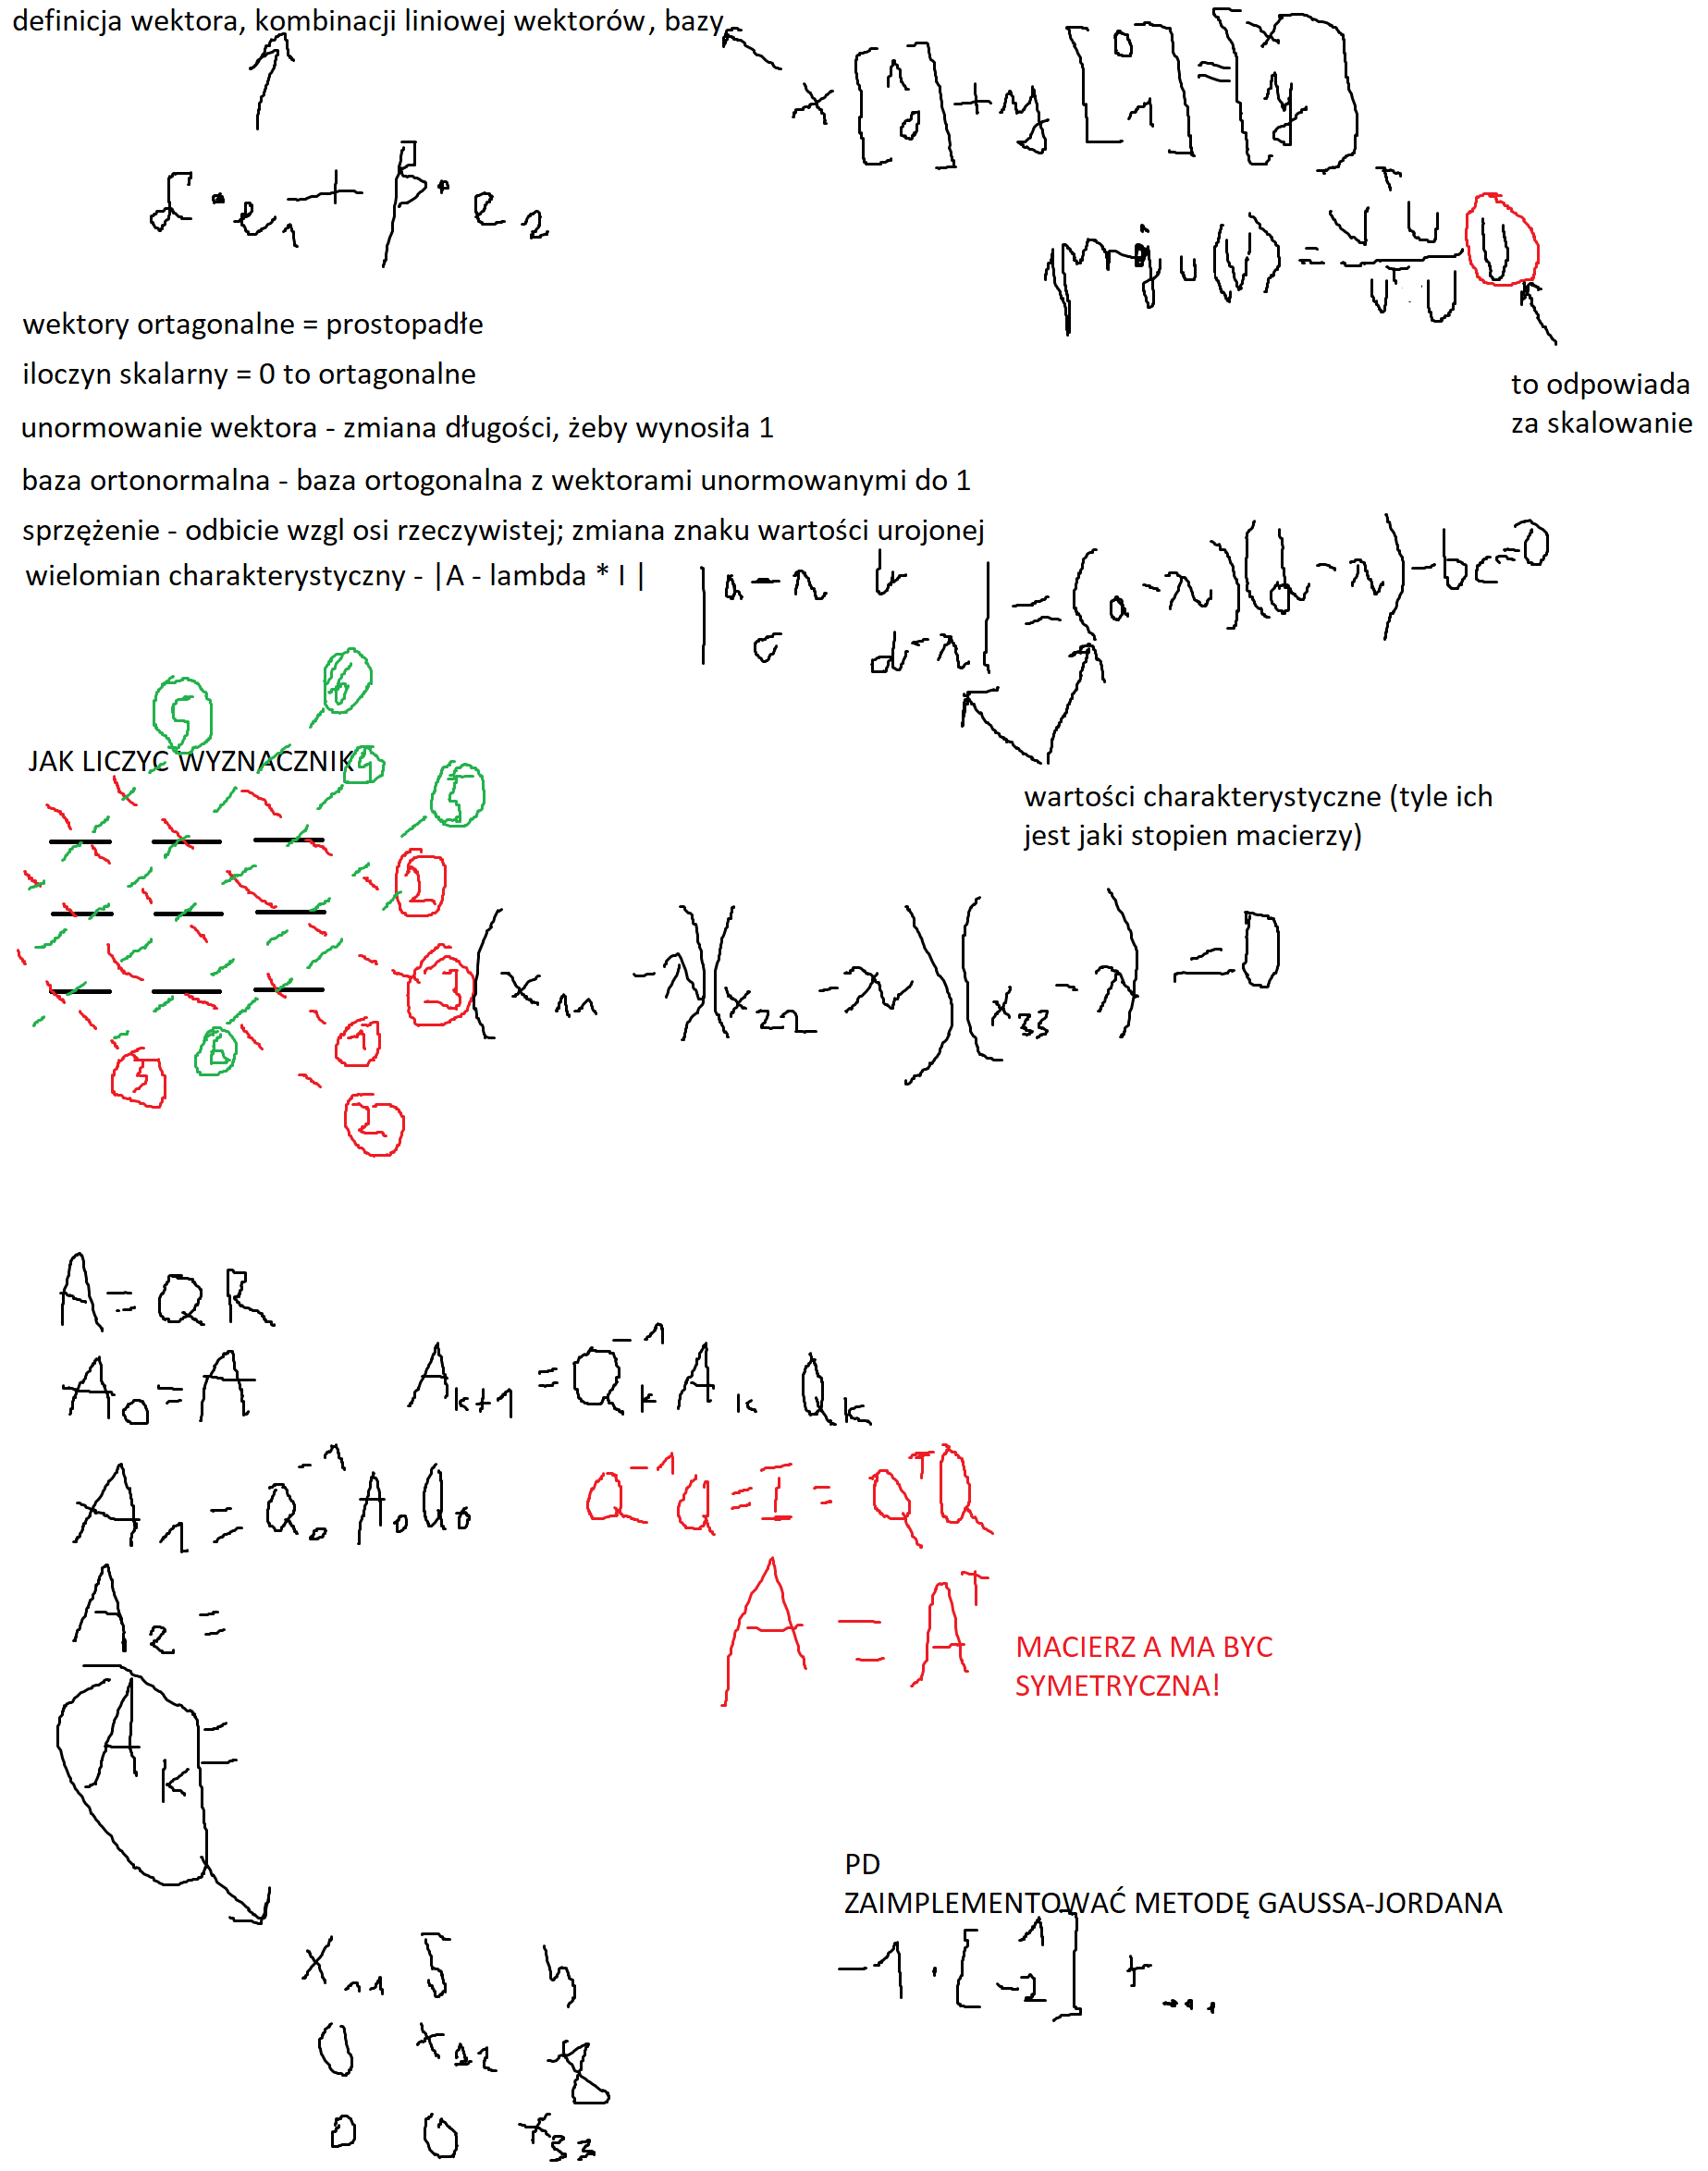 definicja wektora, kombinacji liniowej wektorów, bazy
x [1 0] + y [0 1] = [x y]
α · e₁ + β · e₂
proj u (v) = vᵀu / vᵀu u
to odpowiada
za skalowanie
wektory ortagonalne = prostopadłe
iloczyn skalarny = 0 to ortagonalne
unormowanie wektora - zmiana długości, żeby wynosiła 1
baza ortonormalna - baza ortogonalna z wektorami unormowanymi do 1
sprzężenie - odbicie wzgl osi rzeczywistej; zmiana znaku wartości urojonej
wielomian charakterystyczny - |A - lambda * I |
|a-λ b
c d-λ| = (a-λ)(d-λ)-bc=0
wartości charakterystyczne (tyle ich
jest jaki stopien macierzy)
JAK LICZYC WYZNACZNIK
5 6
4 5
2
3
1
3 6
2
(x₁₁ - λ)(x₂₂ - λ)(x₃₃ - λ) = 0
A = QR
A₀ = A
Aₖ₊₁ = Qₖ⁻¹ Aₖ Qₖ
A₁ = Q₀⁻¹ A₀ Q₀
Q⁻¹Q = I = QᵀQ
A₂ =
A = Aᵀ
MACIERZ A MA BYC
SYMETRYCZNA!
Aₖ =
PD
ZAIMPLEMENTOWAĆ METODĘ GAUSSA-JORDANA
-1 · [1 -2] + ...
x₁₁ 5
0 x₂₂
0 0 x₃₃